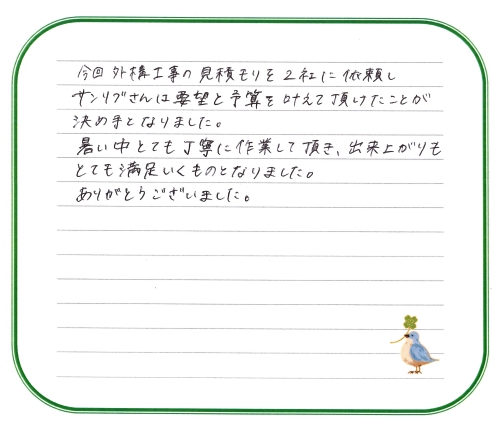 今回 外構工事の見積もりを2社に依頼し
サンリブさんは要望と予算を叶えて頂けたことが
決め手となりました。
暑い中とても丁寧に作業して頂き、出来上がりも
とても満足いくものとなりました。
ありがとうございました。